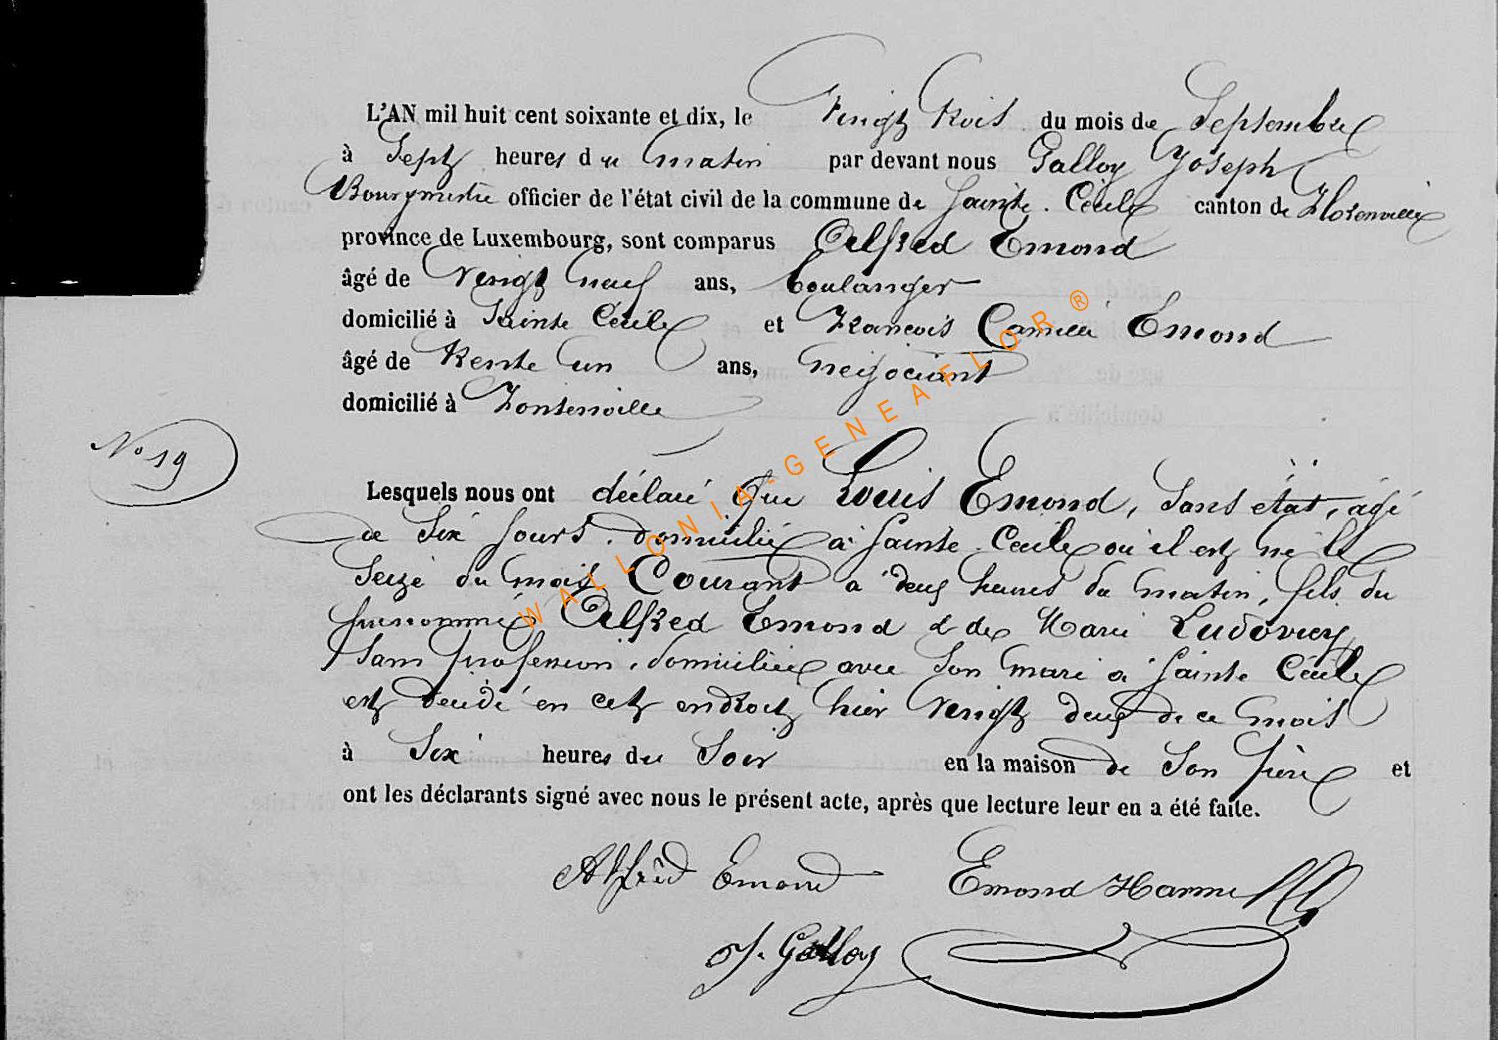 L'AN mil huit cent soixante et dix, le Vingt trois du mois de Septembre
à Sept heures du matin par devant nous Galloy Joseph
Bourgmestre officier de l'état civil de la commune de Sainte-Cécile canton de Florenville
province de Luxembourg, sont comparus Alfred Emond
âgé de vingt neuf ans, boulanger
domicilié à Sainte Cécile et François Camille Emond
âgé de trente un ans, négociant
domicilié à Fontenoille
No 19
Lesquels nous ont déclaré que Louis Emond, sans état, âgé
de six jours, domicilié à Sainte-Cécile où il est né le
seize du mois courant à deux heures du matin, fils du
prénommé Alfred Emond & de Marie Ludovicy
sans profession, domiciliée avec son mari à Sainte Cécile
est décédé en cet endroit hier vingt deux de ce mois
à Six heures du Soir en la maison de son père et
ont les déclarants signé avec nous le présent acte, après que lecture leur en a été faite.
Alfred Emond Emond
J. Galloy
WALLONIA-GENEAFLOR®